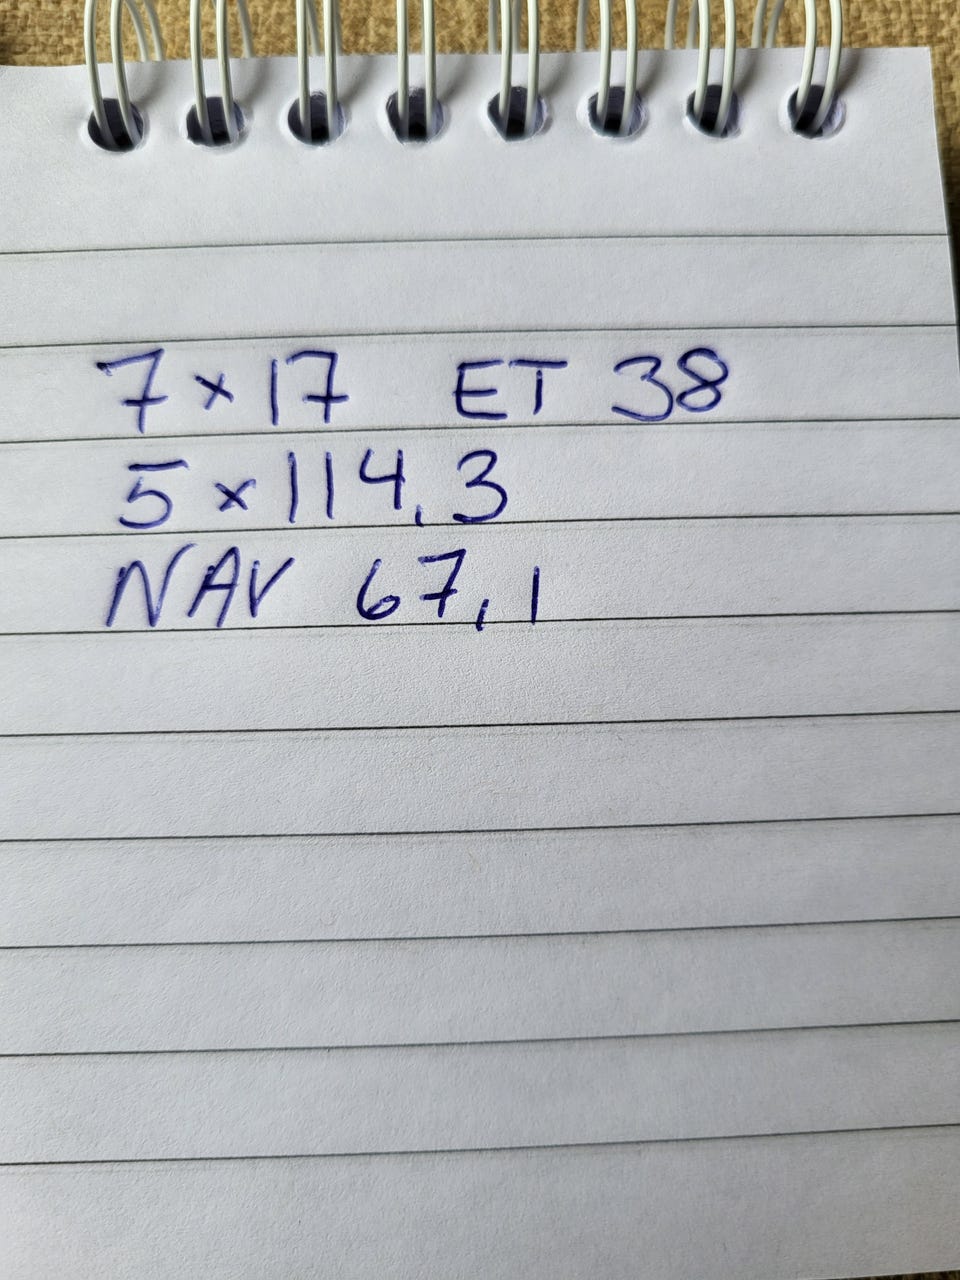 7x17 ET 38
5x114,3
NAV 67,1